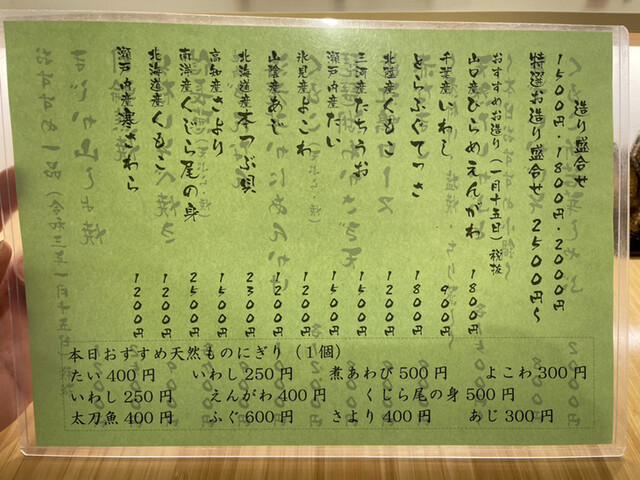 造り盛合せ
1500円・1800円・2000円
特選お造り盛合せ 2500円～
おすすめお造り（一月十五日）税抜
山口産ひらめえんがわ 1800円
千葉産いわし 900円
とらふぐてっさ 1800円
北陸産くもこ 1200円
三河産たちうお 1500円
瀬戸内産たい 1500円
氷見産よこわ 1200円
山陰産あじ 1200円
北海道産本つぶ貝 2300円
高知産さより 1500円
南氷洋産くじら尾の身 2500円
北海道産くもこ 1200円
瀬戸内産寒さわら 1200円
本日おすすめ天然ものにぎり（１個）
たい 400 円 いわし 250 円 煮あわび 500 円 よこわ 300 円
いわし 250 円 えんがわ 400 円 くじら尾の身 500 円
太刀魚 400 円 ふぐ 600 円 さより 400 円 あじ 300 円